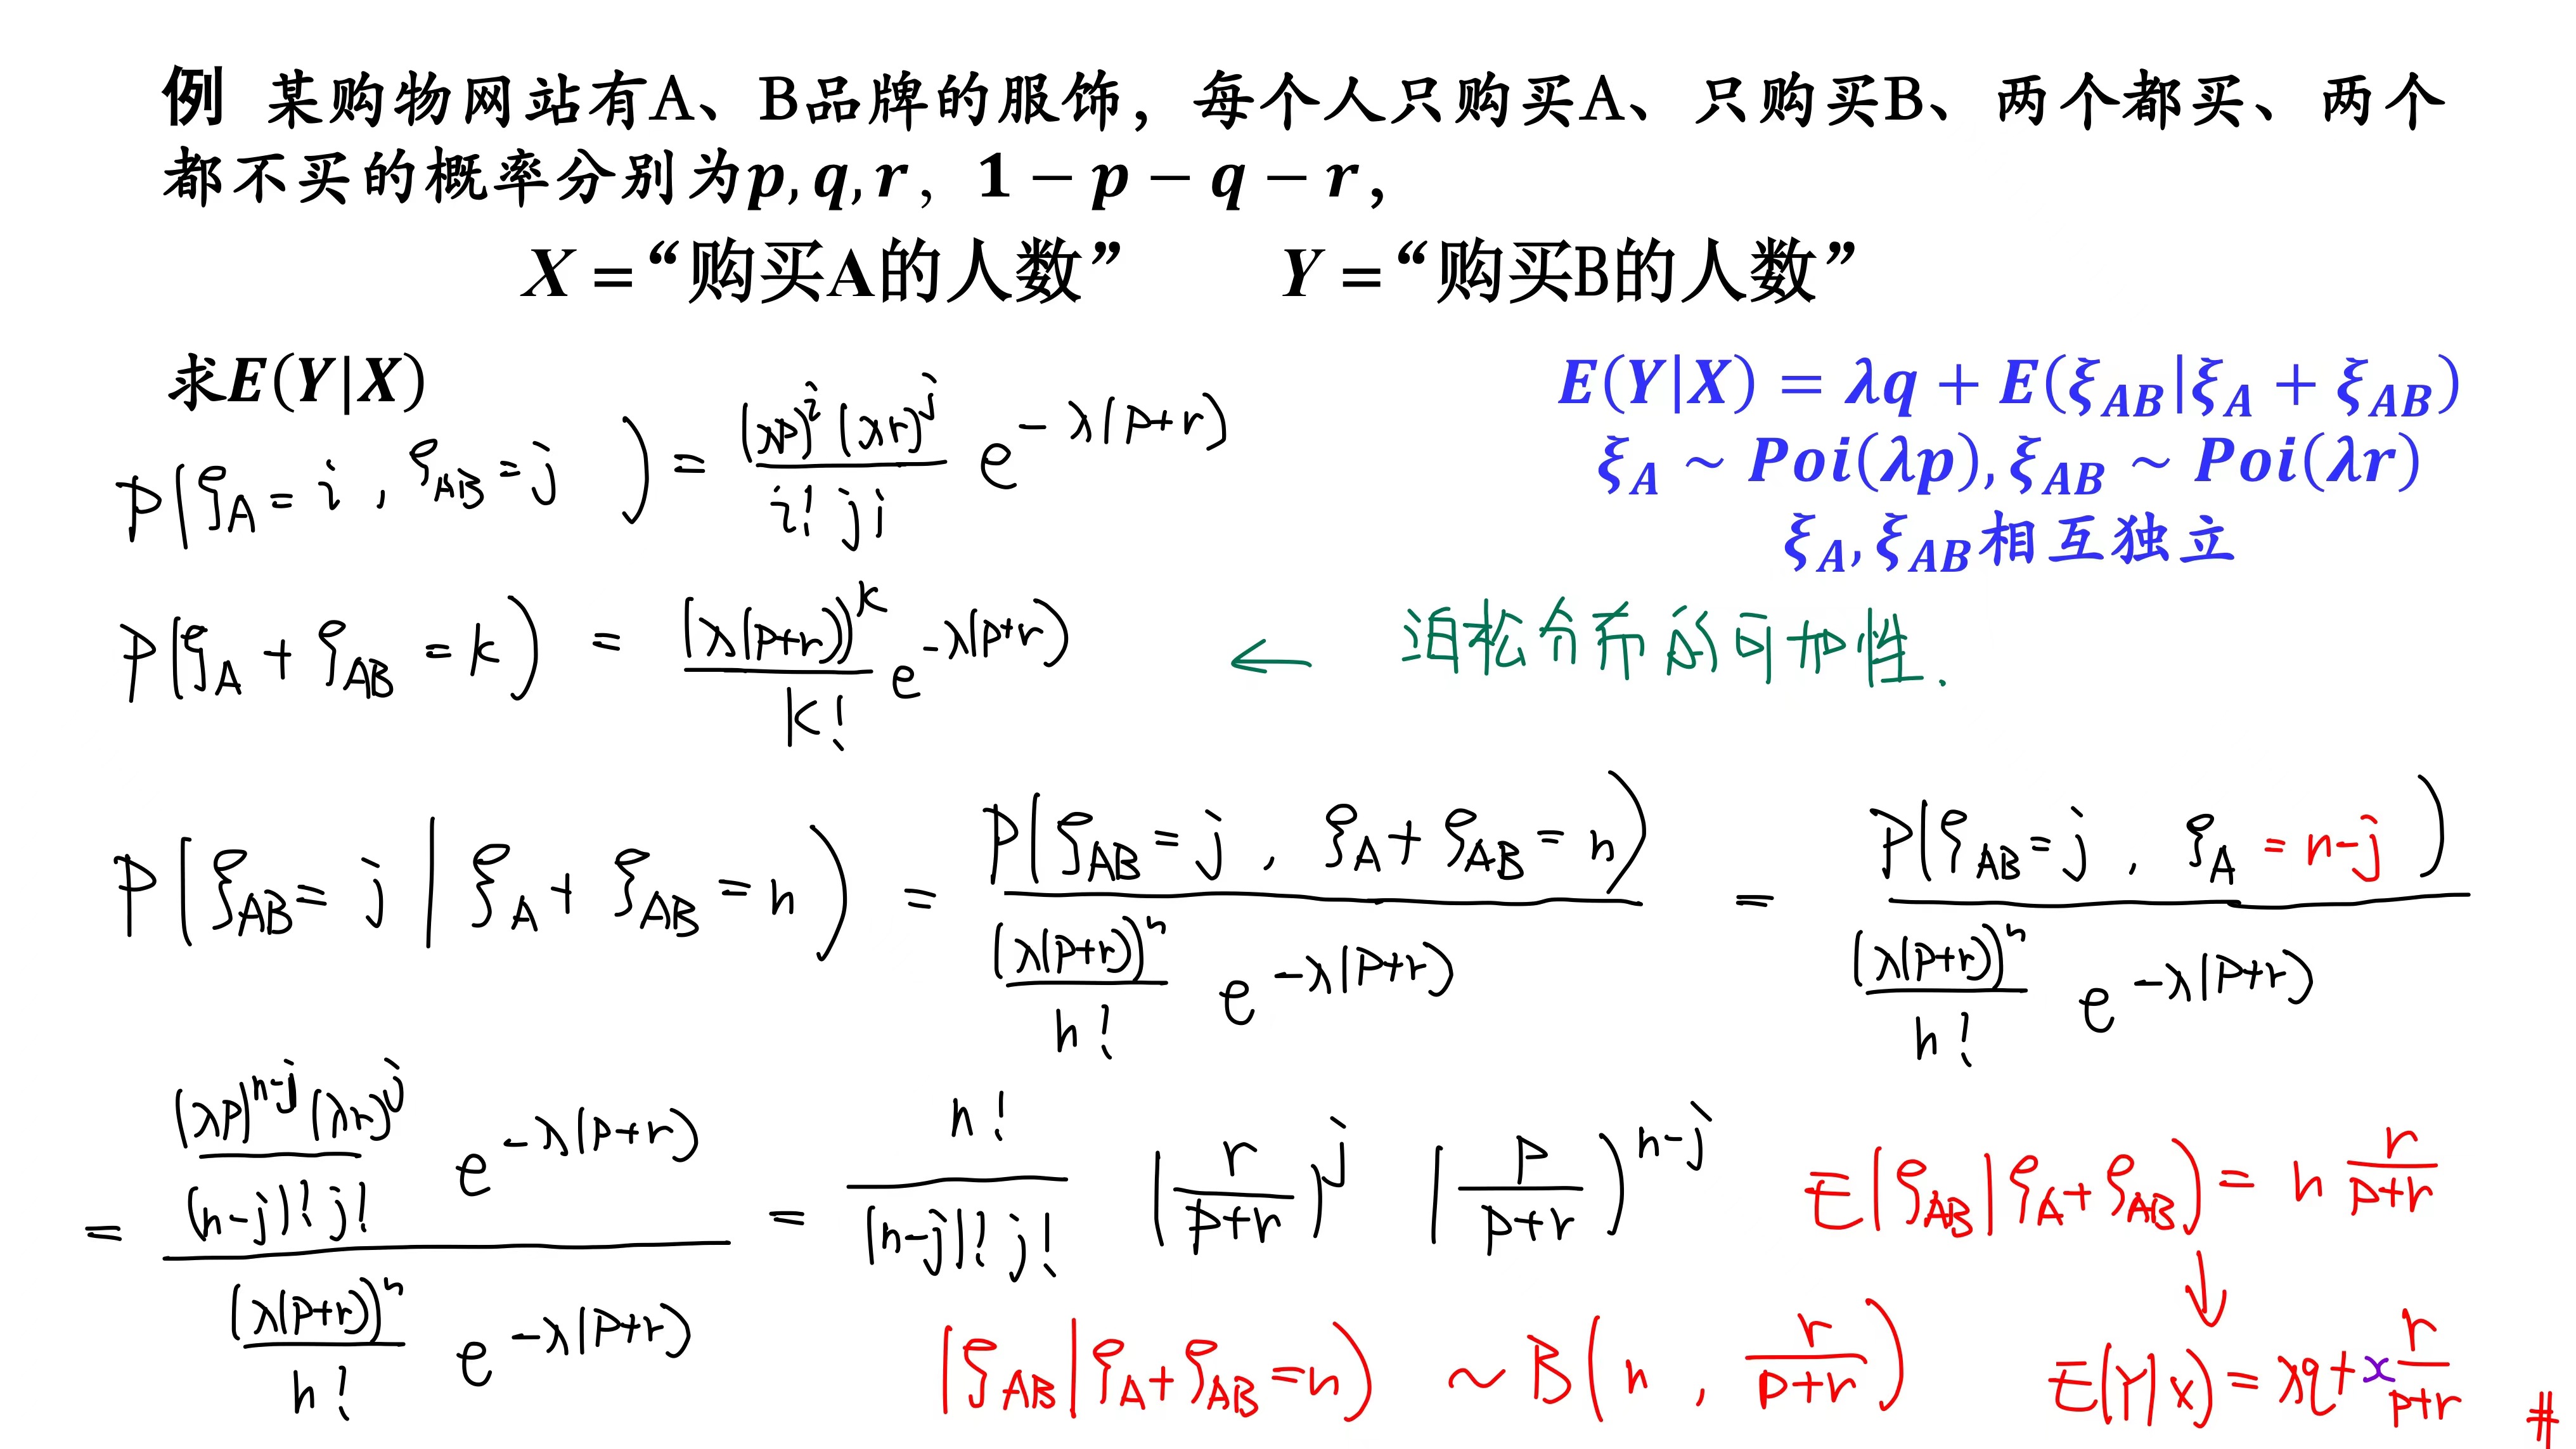 例 某购物网站有A、B品牌的服饰，每个人只购买A、只购买B、两个都买、两个
都不买的概率分别为p, q, r, 1 − p − q − r，
X =“购买A的人数” Y =“购买B的人数”
求E(Y|X)
E(Y|X) = λq + E(ξ_AB|ξ_A + ξ_AB)
ξ_A ~ Poi(λp), ξ_AB ~ Poi(λr)
ξ_A, ξ_AB相互独立
P(ξ_A = i , ξ_AB = j ) = (λp)^i (λr)^j / i! j! e^{-λ(p+r)}
P(ξ_A + ξ_AB = k) = (λ(p+r))^k / k! e^{-λ(p+r)} ← 泊松分布的可加性.
P(ξ_AB = j | ξ_A + ξ_AB = n) = P(ξ_AB = j , ξ_A + ξ_AB = n) / (λ(p+r))^n / n! e^{-λ(p+r)} = P(ξ_AB = j , ξ_A = n-j ) / (λ(p+r))^n / n! e^{-λ(p+r)}
= (λp)^{n-j} (λr)^j / (n-j)! j! e^{-λ(p+r)} / (λ(p+r))^n / n! e^{-λ(p+r)} = n! / (n-j)! j! (r / p+r)^j (p / p+r)^{n-j}
E(ξ_AB | ξ_A + ξ_AB) = n r / p+r
↓
(ξ_AB | ξ_A + ξ_AB = n) ~ B(n , r / p+r)
E(Y|X) = λq + x r / p+r #